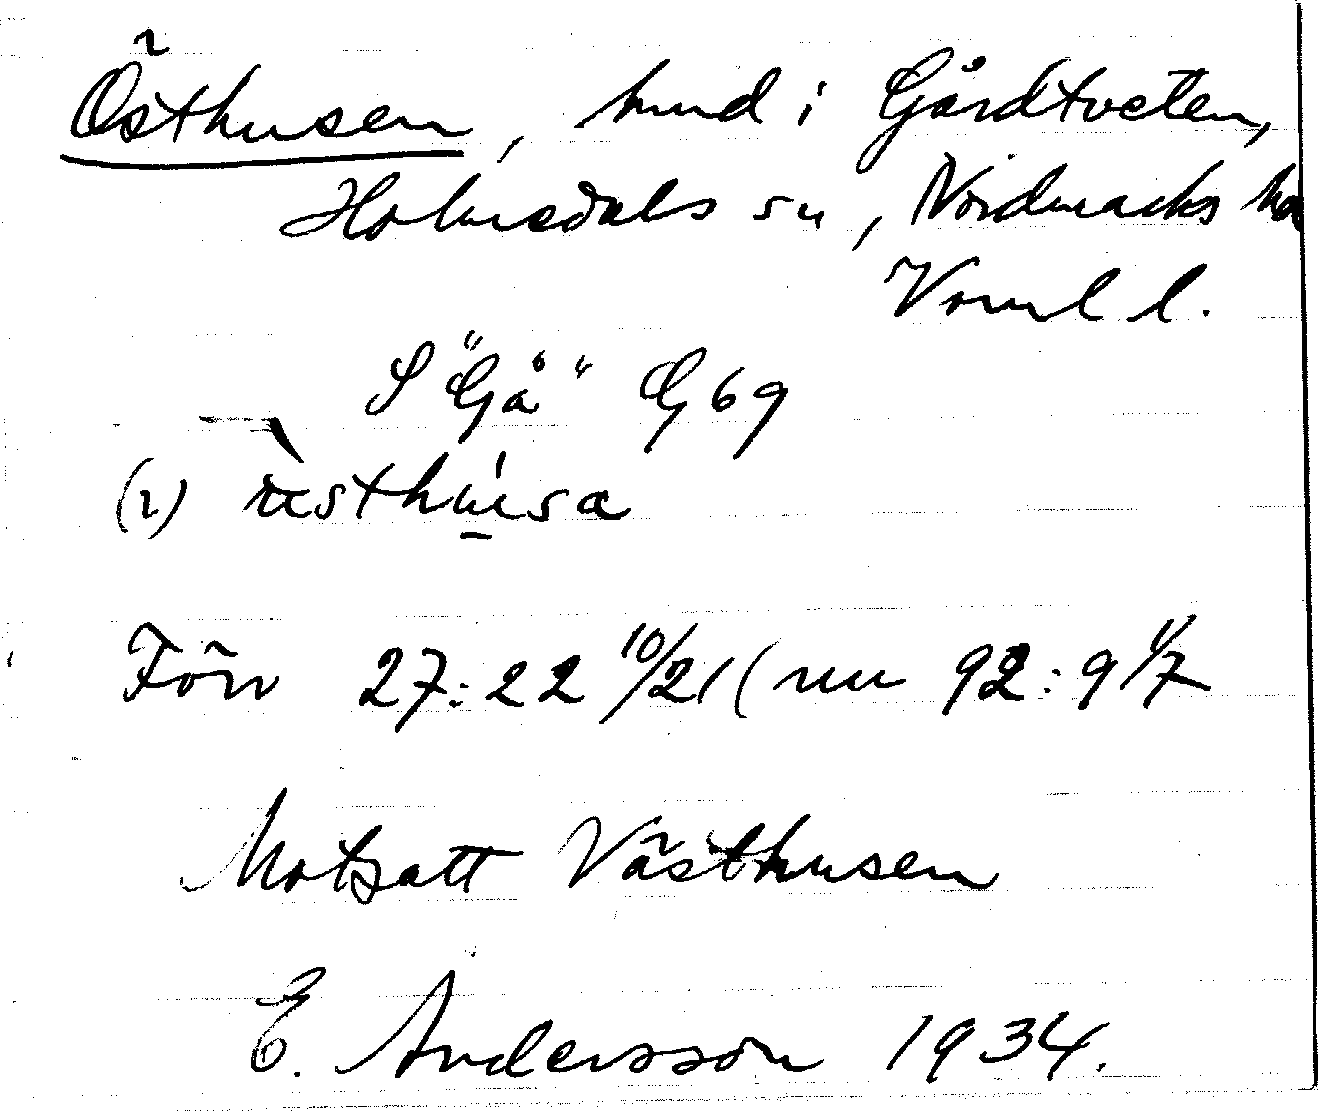 Östhusen, hmd i Gårdtveten,
Holmedals sn, Nordmarks hd
Verml l.
S "Gå" G 69
(2) üsthúsa
Förr 27:22 10/21 (nu 92:9 1/7
Motsatt Västhusen
E. Andersson 1934.